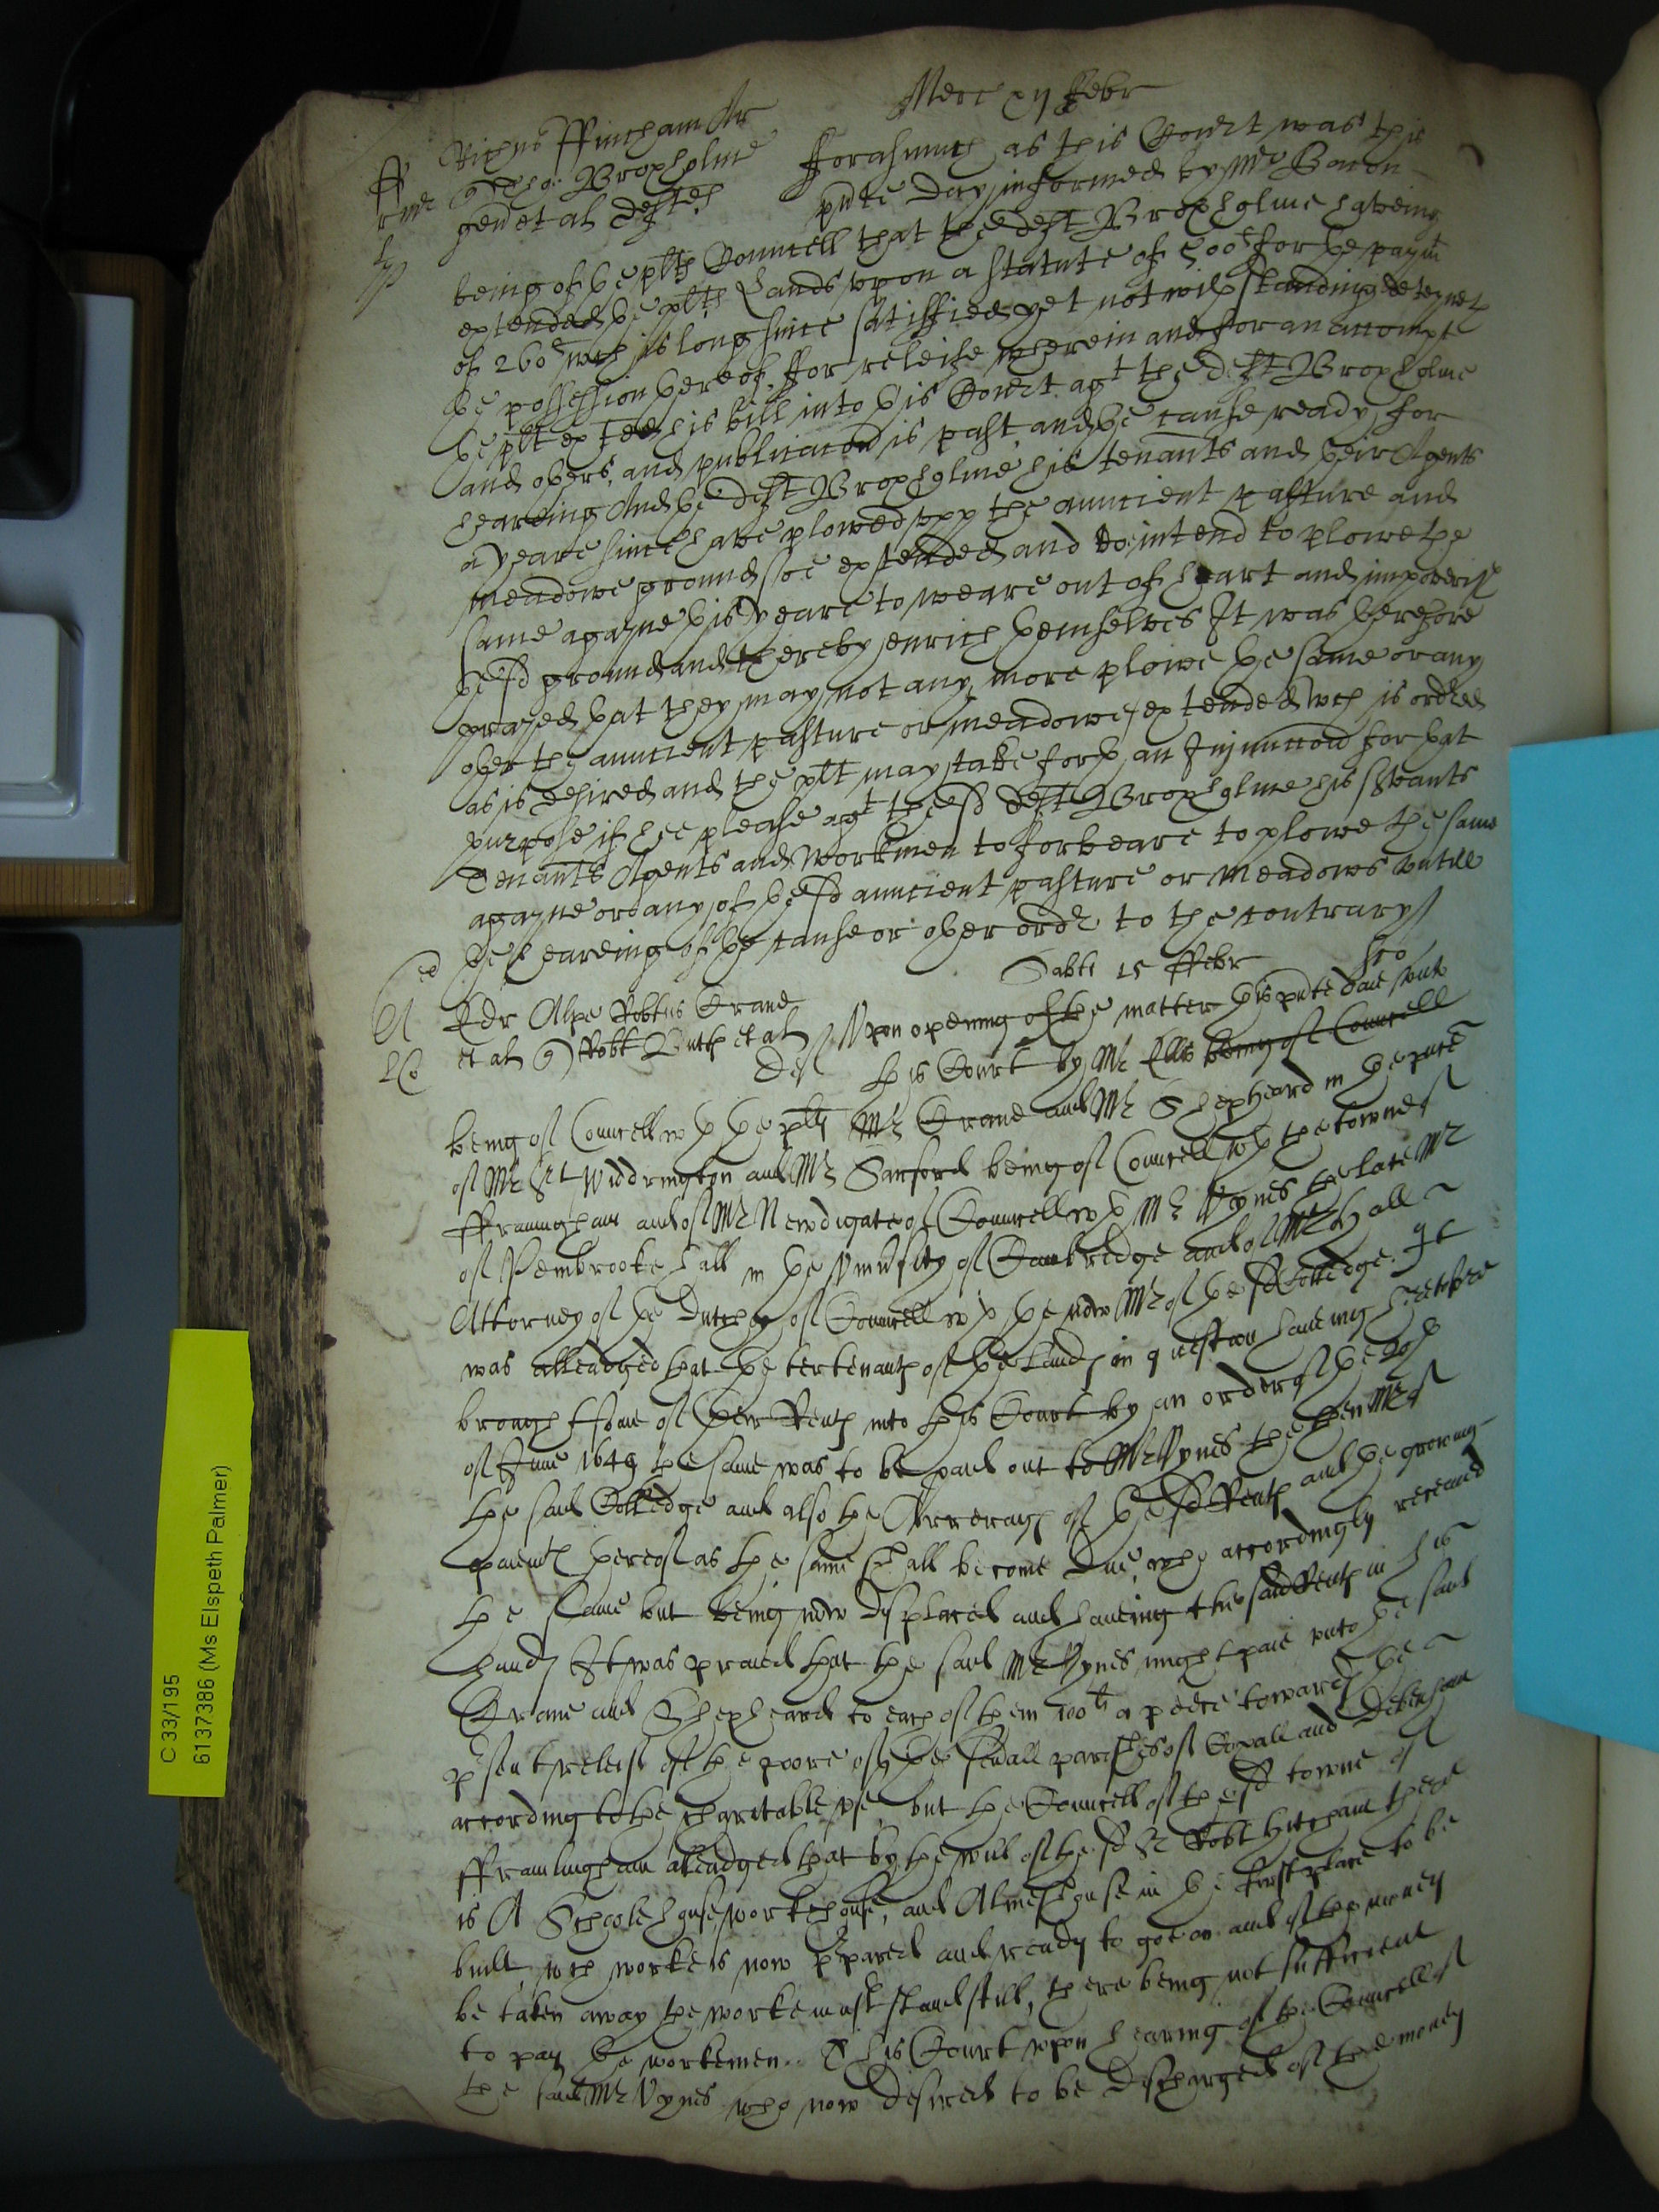 Merc xij Febr
Richus Ffincham Ar
Tho: Broxholme
gen et al deftes
Forasmuch as this Court was this
pnte day informed by Mr Bacon
being of ye plts Councell that the deft Broxholme haveing
extended ye plts Lands upon a statute of 500l for ye paymt
of 260l wch is long since satisfied yet notwithstanding deteyneth
ye possession thereof, for releife wherein and for an accompt
ye plt exhibted his bill into this Court agt the deft Broxholme
and others, and publicacon is past and ye cause ready for
heareing And ye deft Broxholme his tenants and their Agents
a yeare since have plowed upp the auncient pasture and
meadowe ground soe extended and doe intend to plowe the
same agayne this yeare to weare out of heart and impoverish
ye sd ground and thereby enrich themselves It was therefore
prayed that they may not any more plowe the same or any
other the auncient pasture or meadowe extended wch is ordred
as is desired and the plt may take forth an Injunccon for that
purpose if hee please agt the sd deft Broxholme his servants
Tenants Agents and Workmen to forbeare to plowe the same
agayne or any of ye sd auncient pasture or meadows untill
ye heareing of ye cause or other ordr to the contrary
Sabti 15 Febr
Edr Alpe Robtus Crane
et al Robt Butts et al
Def
Upon opening of the matter this pnte daie unto
this Court by Mr Ellis being of Councell
being of Councell wth ye plts Mr Crane and Mr Shepheard in ye pnce
of Mr Widdrington and Mr Sanford being of Councell wth the towne of
Framingham and of Mr Newdigate of Councell wth Mr Vynes the late Mr
of Pembrooke hall in ye University of Cambridge and of Mr Hall
Attorney of ye Dutchy of Councell wth ye now Mr of ye sd Colledge. It
was alleadged that ye tertenants of ye Lands in question haveing heretofore
brought some of their Rents into this Court by an order of ye 20th
of June 1649 the same was to be paid out to Mr Vynes the then Mr of
the said Colledge and also the Arrerages of ye sd Rents and ye groweing
paymts thereof as the same shall become due, who accordingly receaved
the same but being now displaced and haveing the said Rents in his
hands It was praied that the said Mr Vynes might paie unto ye said
Crane and Shepheard to each of them 100l a peece towards ye
psent releife of the poore of ye severall parishes of Coxall and Debenham
according to the charitable use, but the Councell of the sd towne of
Framlingham alleadged that by the will of the sd Sr Robt Hitcham there
is A Schoole house, workehouse, and Almeshouse in ye first place to be
built, wch worke is now ppared and ready to goe on and if the money
be taken away the worke must stand still, there being not sufficient
to pay the workemen. This Court upon hearing of the Councell of
the said Mr Vynes who now desired to be discharged of the money
C 33/195
6137386 (Ms Elspeth Palmer)